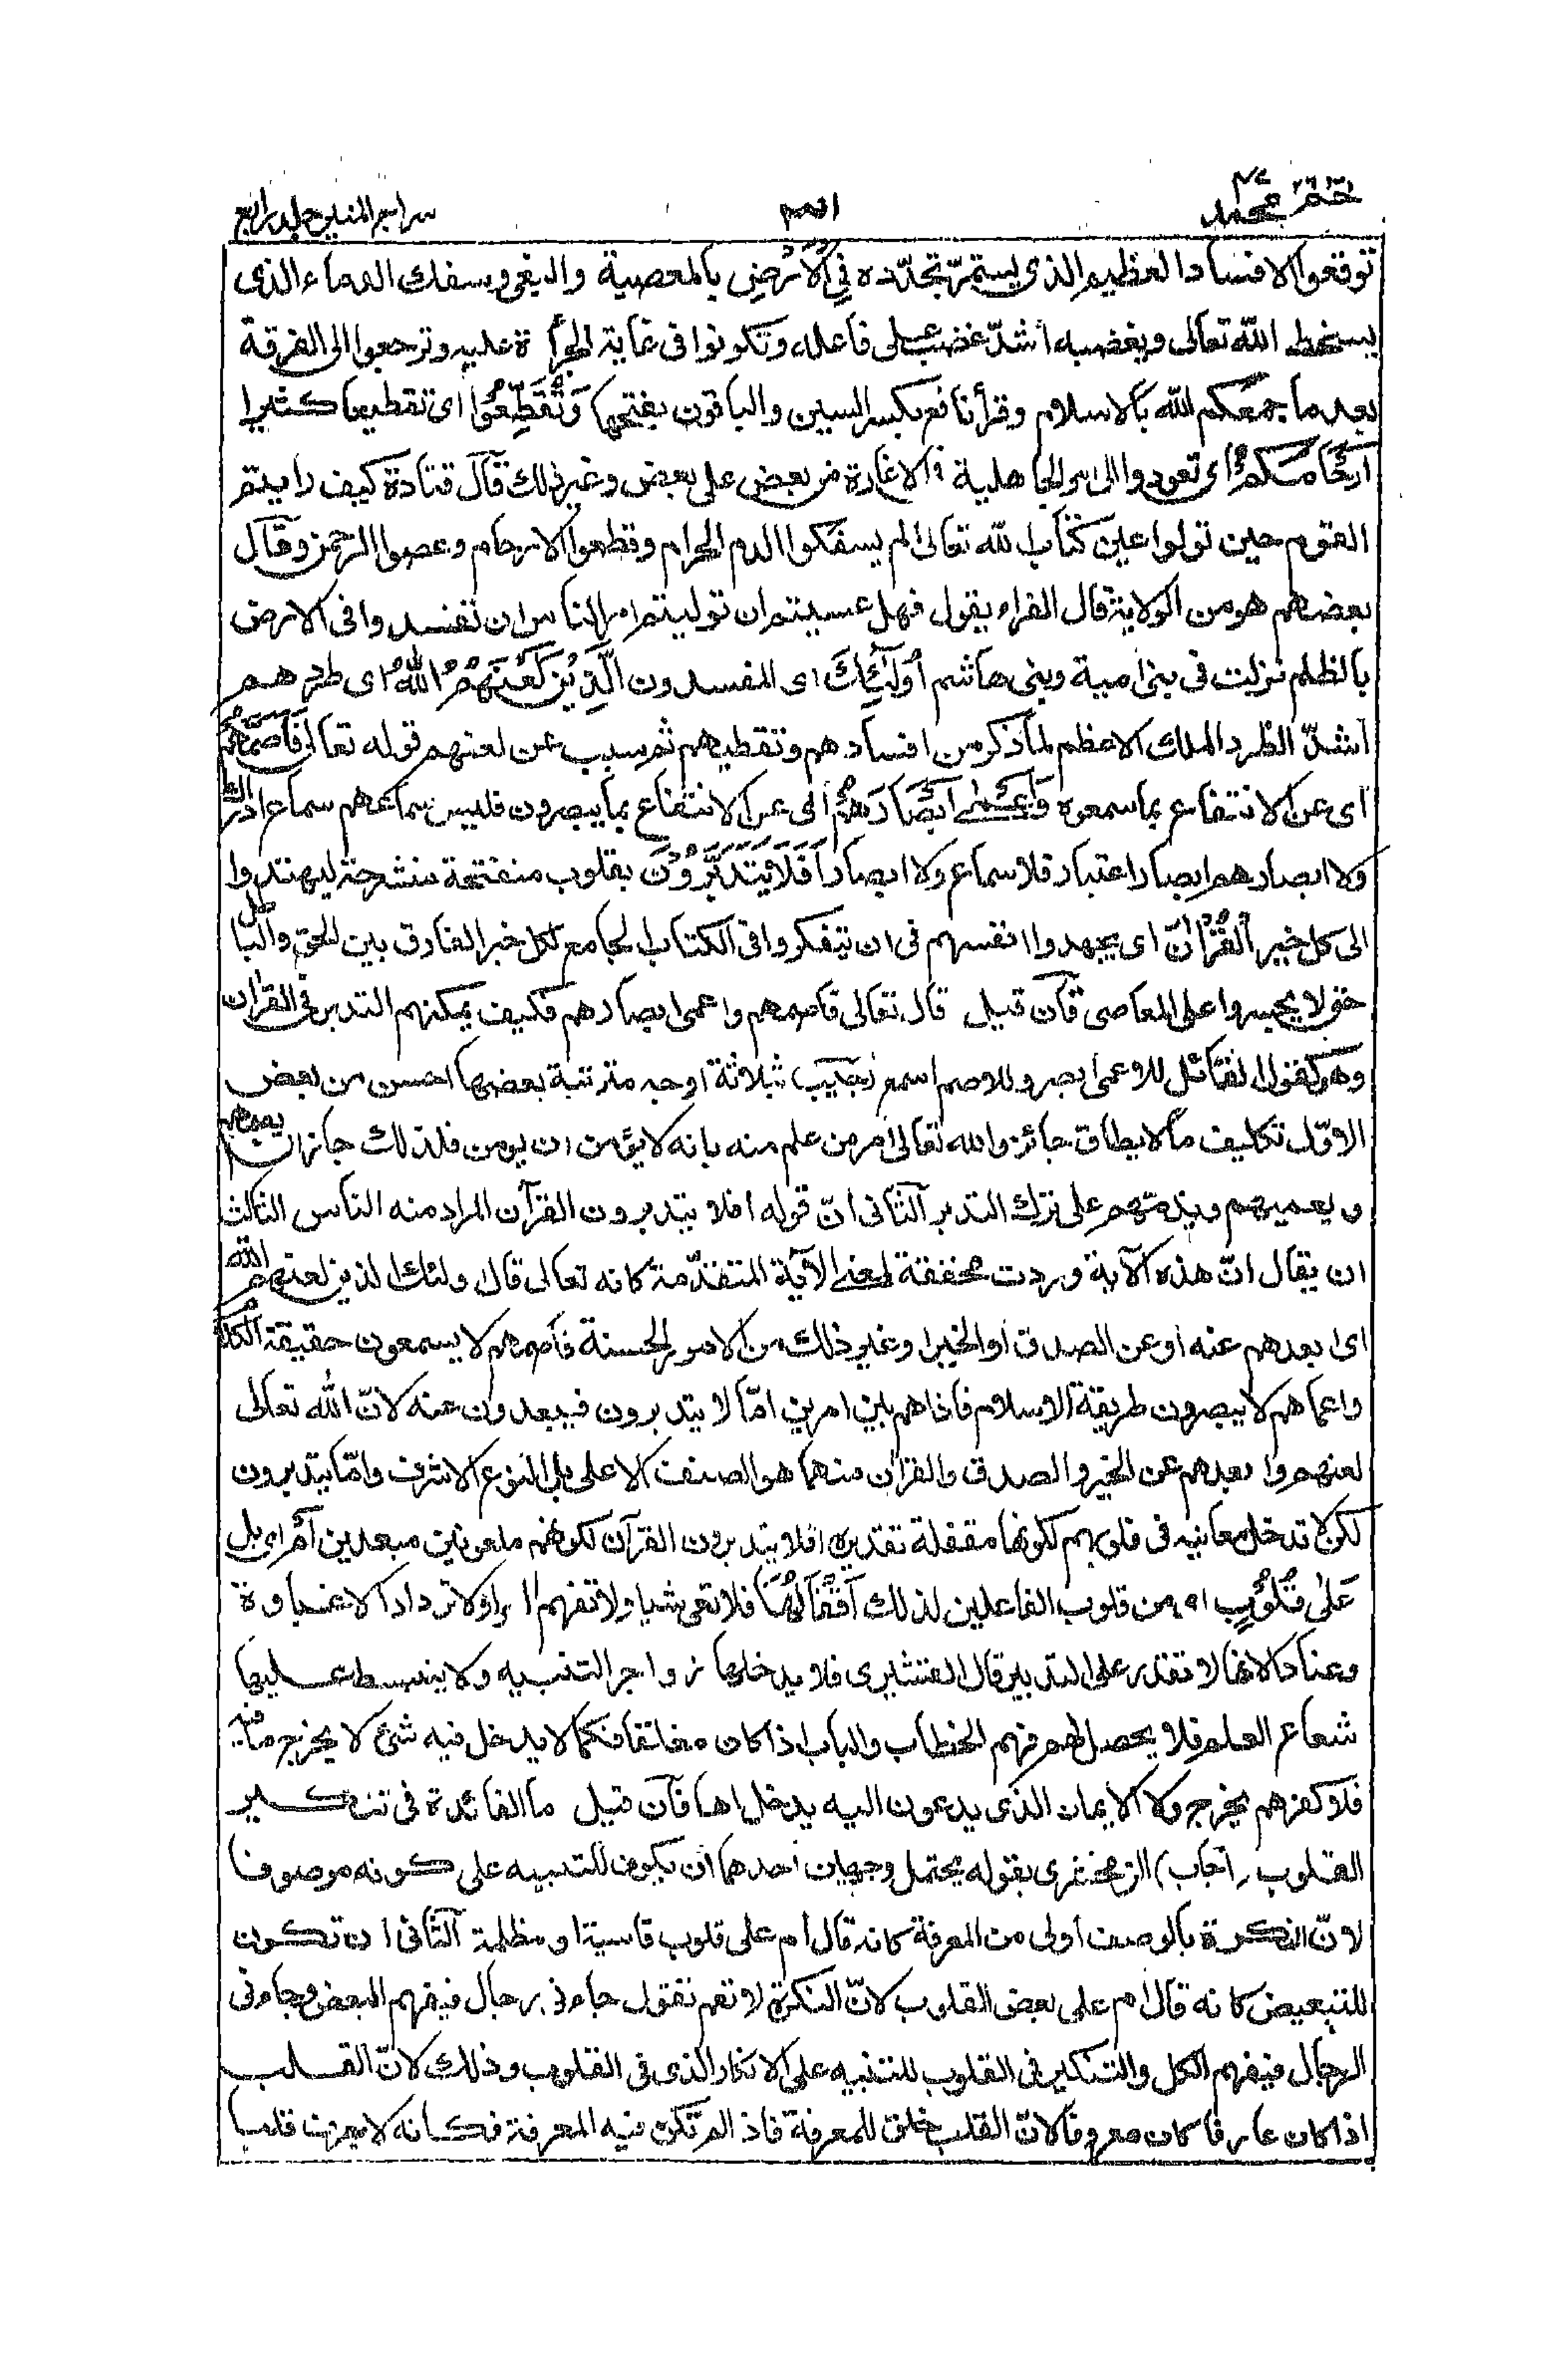 حٰم محمد ٢٦
سراج المنير جلد رابع
توقعوا الافساد العظيم الذى يستمر تجدّده فِى الْاَرْضِ بالمعصية والبغى وسفك الدماء الذى
يسخط الله تعالى ويغضبه أشدّ غضب على فاعله وتكونوا فى غاية الجرأة عليه وترجعوا الى الفرقة
بعد ما جمعكم الله بالاسلام وقرأ نافع بكسر السين والباقون بفتحها وَتُقَطِّعُوْا اى تقطيعا كثيرا
اَرْحَامَكُمْ اى تعودوا الى امر الجاهلية فى الاغارة من بعض على بعض وغير ذلك قال قتادة كيف رايتم
القوم حين تولوا عن كتاب الله تعالى الم يسفكوا الدم الحرام وقطعوا الارحام وعصوا الرحمن وقال
بعضهم هو من الولاية قال الفراء يقول فهل عسيتم ان توليتم امر الناس ان تفسدوا فى الارض
بالظلم نزلت فى بنى امية وبنى هاشم اُولٰٓئِكَ اى المفسدون الَّذِيْنَ لَعَنَهُمُ اللّٰهُ اى طردهم
اشدّ الطرد الملك الاعظم لما ذكر من افسادهم وتقطيعهم ثم سبب عن لعنهم قوله تعالى فَاَصَمَّهُمْ
اى عن الانتفاع بما سمعوه وَاَعْمٰى اَبْصَارَهُمْ اى عن الانتفاع بما يبصرون فليس سماعهم سماع ادراك
ولا ابصارهم ابصار اعتبار فلا سماع ولا ابصار اَفَلَا يَتَدَبَّرُوْنَ بقلوب منفتحة منشرحة ليهتدوا
الى كل خير الْقُرْاٰنَ اى يجهدوا انفسهم فى ان يتفكروا فى الكتاب الجامع لكل خير الفارق بين الحق والباطل
حتى لا يجسروا على المعاصى فان قيل قال تعالى فاصمهم واعمى ابصارهم فكيف يمكنهم التدبر فى القران
وهو كقول القائل للاعمى ابصر وللاصم اسمع اجيب بثلاثة اوجه مترتبة بعضها احسن من بعض
الاوّل تكليف ما لا يطاق جائز والله تعالى امر من علم منه بانه لا يؤمن ان يومن فلذلك جاز ان يصمهم
ويعميهم ويذمّهم على ترك التدبر الثانى انّ قوله افلا يتدبرون القرآن المراد منه الناس الثالث
ان يقال انّ هذه الآية وردت محققة لمعنى الآية المتقدّمة كانه تعالى قال اولئك الذين لعنهم الله
اى بعدهم عنه او عن الصدق او الخير او غير ذلك من الامور الحسنة فاصمهم لا يسمعون حقيقة الكلام
واعماهم لا يبصرون طريقة الاسلام فاذا هم بين امرين امّا لا يتدبرون فيبعدون عنه لانّ الله تعالى
لعنهم وا بعدهم عن الخير والصدق والقران منهما هو الصنف الاعلى بل النوع الاشرف وامّا يتدبرون
لكن لا تدخل معانيه فى قلوبهم لكونها مقفلة تقديره افلا يتدبرون القرآن لكونهم ملعونين مبعدين اَمْ اى بل
عَلٰى قُلُوْبٍ اى من قلوب الفاعلين لذلك اَقْفَالُهَا فلا تعى شيا ولا تفهم امرا ولا تزداد الا غباوة
وعنادا لانها لا تقدر على التدبير قال القشيرى فلا يدخلها زواجر التنبيه ولا ينبسط عليها
شعاع العلم فلا يحصل لهم فهم الخطاب والباب اذا كان مغلقا فكما لا يدخل فيه شئ لا يخرج ما فيه
فلا كفرهم يخرج ولا الايمان الذى يدعون اليه يدخل اها فان قيل ما الفائدة فى تنكير
القلوب (اجاب) الزمخشرى بقوله يحتمل وجهين احدهما ان يكون للتنبيه على كونه موصوفا
لانّ النكرة بالوصف أولى من المعرفة كانه قال أم على قلوب قاسية او مظلمة الثانى ان تكون
للتبعيض كانه قال ام على بعض القلوب لانّ النكرة لا تعم تقول جاءنى رجال فيفهم البعض وجاءنى
الرجال فيفهم الكل والتنكير فى القلوب للتنبيه على الانكار الذى فى القلوب وذلك لانّ القلب
اذا كان عارفا كان معروفا لانّ القلب خلق للمعرفة فاذا لم تكن فيه المعرفة فكانه لا يعرف قلبا